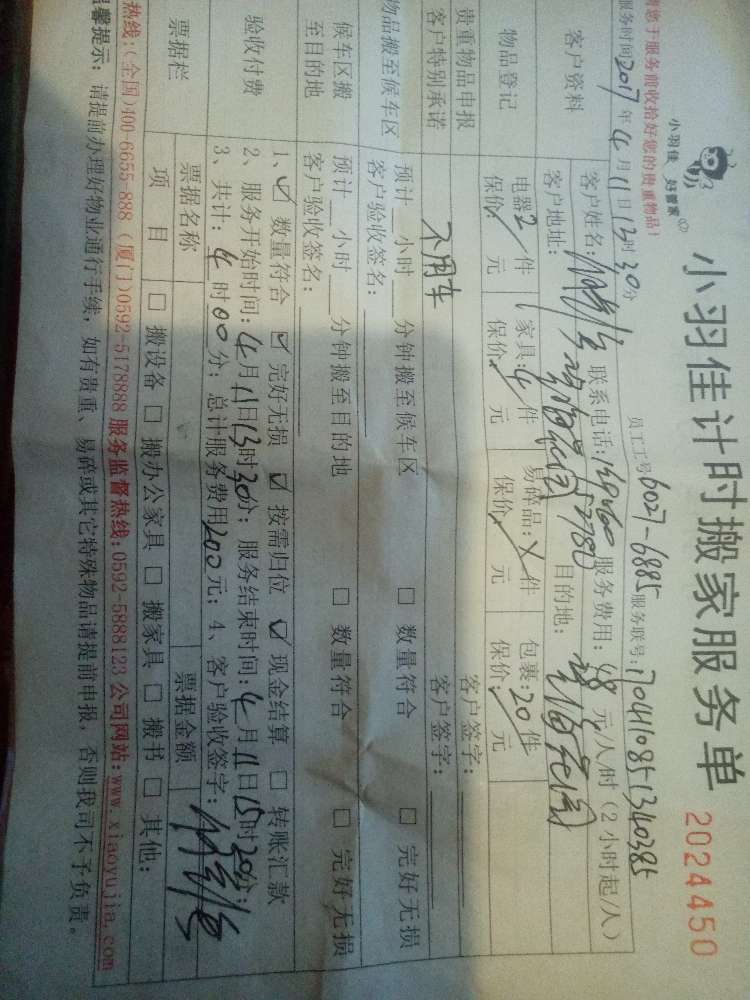 小羽佳 好管家
小羽佳计时搬家服务单 2024450
请您于服务前收拾好您的贵重物品!
员工工号6027-6885服务联号:170411085134 0385
服务时间2017年4月11日13时30分
客户资料 客户姓名: 联系电话: 服务费用:48元/人/时(2小时起/人)
客户地址: 目的地:
物品登记 电器2件 家具:4件 易碎品:X件 包裹:20件
保价/元 保价/元 保价/元 保价/元
贵重物品申报 客户签字:
客户特别承诺 不用车 客户签字:
物品搬至候车区 预计 小时 分钟搬至候车区 □ 数量符合 □ 完好无损
客户验收签名:
候车区搬至目的地 预计 小时 分钟搬至目的地 □ 数量符合 □ 完好无损
客户验收签名:
验收付费 1、☑ 数量符合 ☑ 完好无损 ☑ 按需归位 ☑ 现金结算 □ 转账汇款
2、服务开始时间:4月11日13时30分; 服务结束时间:4月11日15时20分;
3、共计:4时00分; 总计服务费用200元; 4、客户验收签字:
票据栏 票据名称 票据金额
项目 □ 搬设备 □ 搬办公家具 □ 搬家具 □ 搬书 □ 其他:
热线:(全国)400-6655-888 (厦门)0592-5178888 服务监督热线:0592-5888123 公司网站:www.xiaoyujia.com
温馨提示: 请提前办理好物业通行手续, 如有贵重、易碎或其它特殊物品请提前申报, 否则我司不予负责。